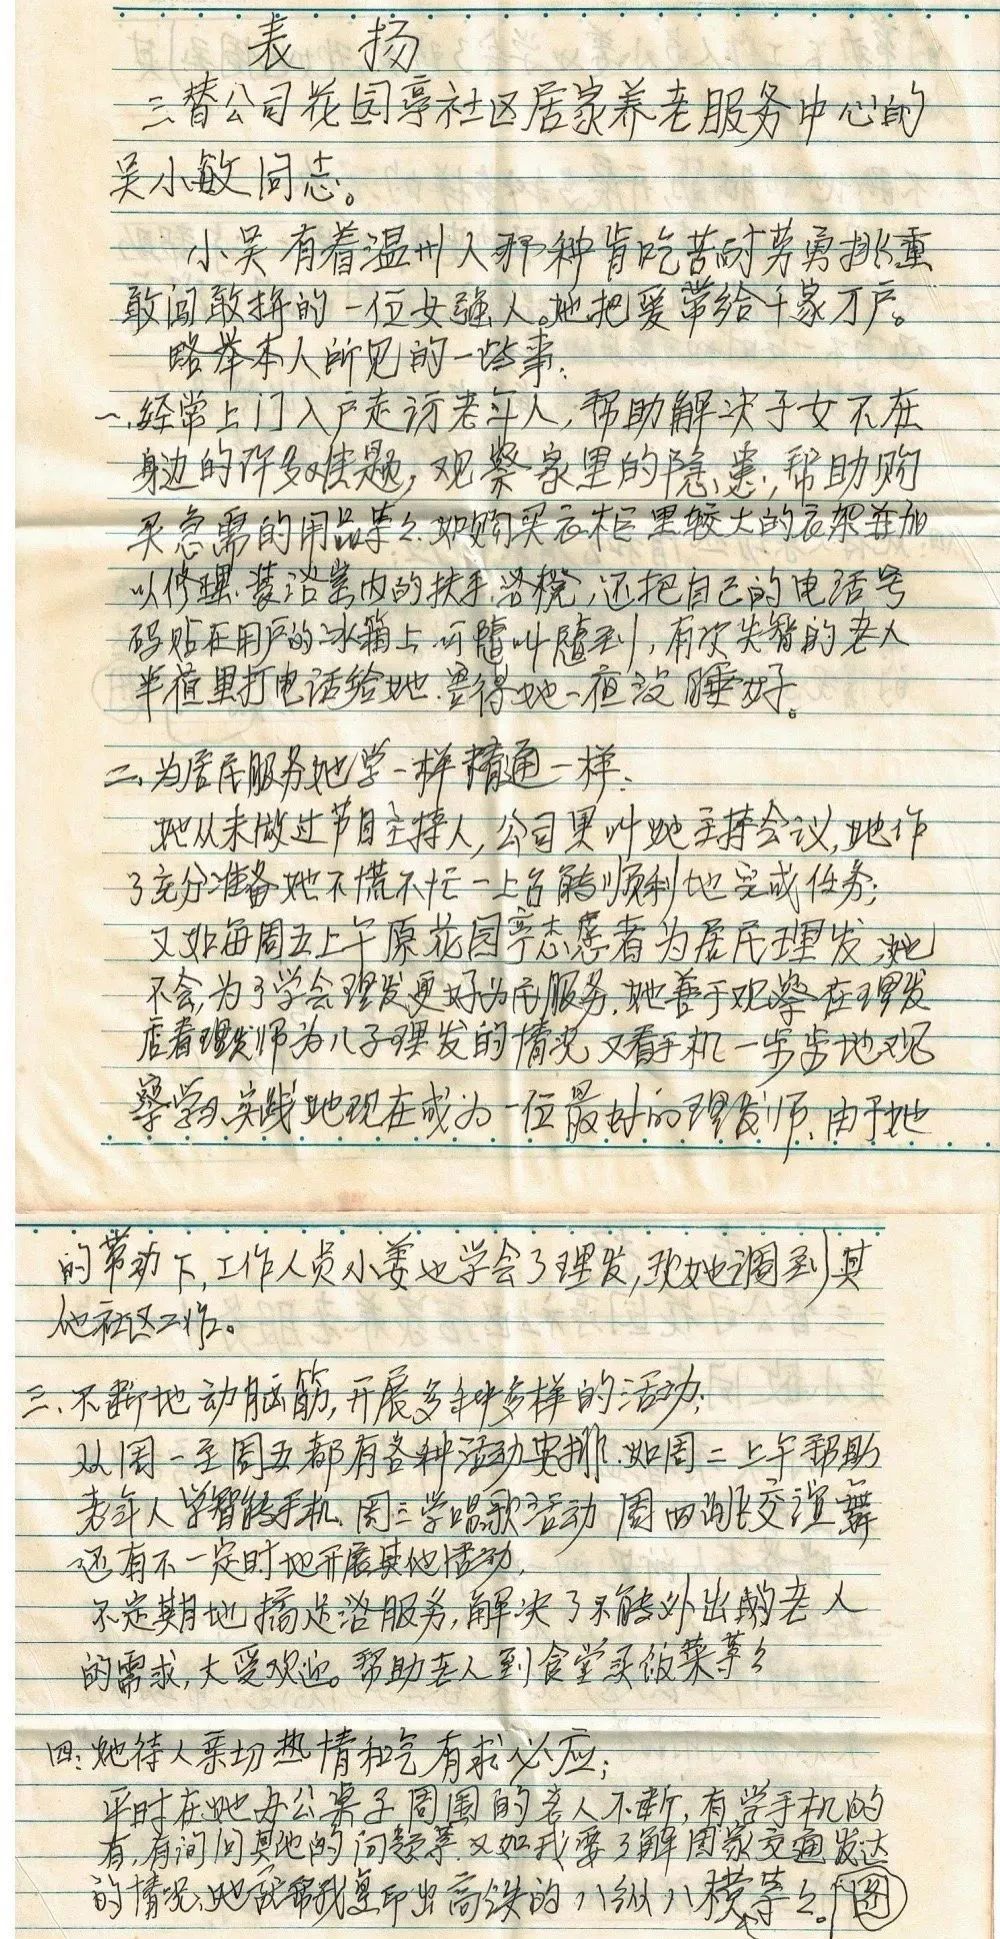 表扬
三替公司花园亭社区居家养老服务中心的
吴小敏同志。
小吴有着温州人那种肯吃苦耐劳勇挑重
敢闯敢拼的一位女强人。她把爱带给千家万户。
略举本人所见的一些事:
一、经常上门入户走访老年人,帮助解决子女不在
身边的许多难题,观察家里的隐患,帮助购
买急需的用品等々如购买衣柜里较大的衣架并加
以修理、装浴室内的扶手、浴凳,还把自己的电话号
码贴在用户的冰箱上可随叫随到,有次失智的老人
半夜里打电话给她.害得她一夜没睡好。
二、为居民服务她学一样精通一样:
她从未做过节目主持人,公司里叫她主持会议,她作
了充分准备她不慌不忙一上台能顺利地完成任务;
又如每周五上午原花园亭志愿者为居民理发,她
不会,为了学会理发更好为民服务,她善于观察在理发
店看理发师为儿子理发的情况又看手机一步步地观
察学习、实践她现在成为一位最好的理发师、由于她
的带动下,工作人员小姜也学会了理发,现她调到其
他社区工作。
三、不断地动脑筋,开展多种多样的活动:
从周一至周五都有各种活动安排.如周二上午帮助
老年人学智能手机、周三学唱歌活动 周四跳交谊舞
还有不一定时地开展其他活动,
不定期地搞足浴服务,解决了不能外出的老人
的需求,大受欢迎。帮助老人到食堂买饭菜等々
四:她待人亲切热情和气有求必应;
平时在她办公桌子周围的老人不断,有学手机的
有,有询问其他的问题等.又如我要了解国家交通发达
的情况、她就帮我复印出高铁的八纵八横图等々。